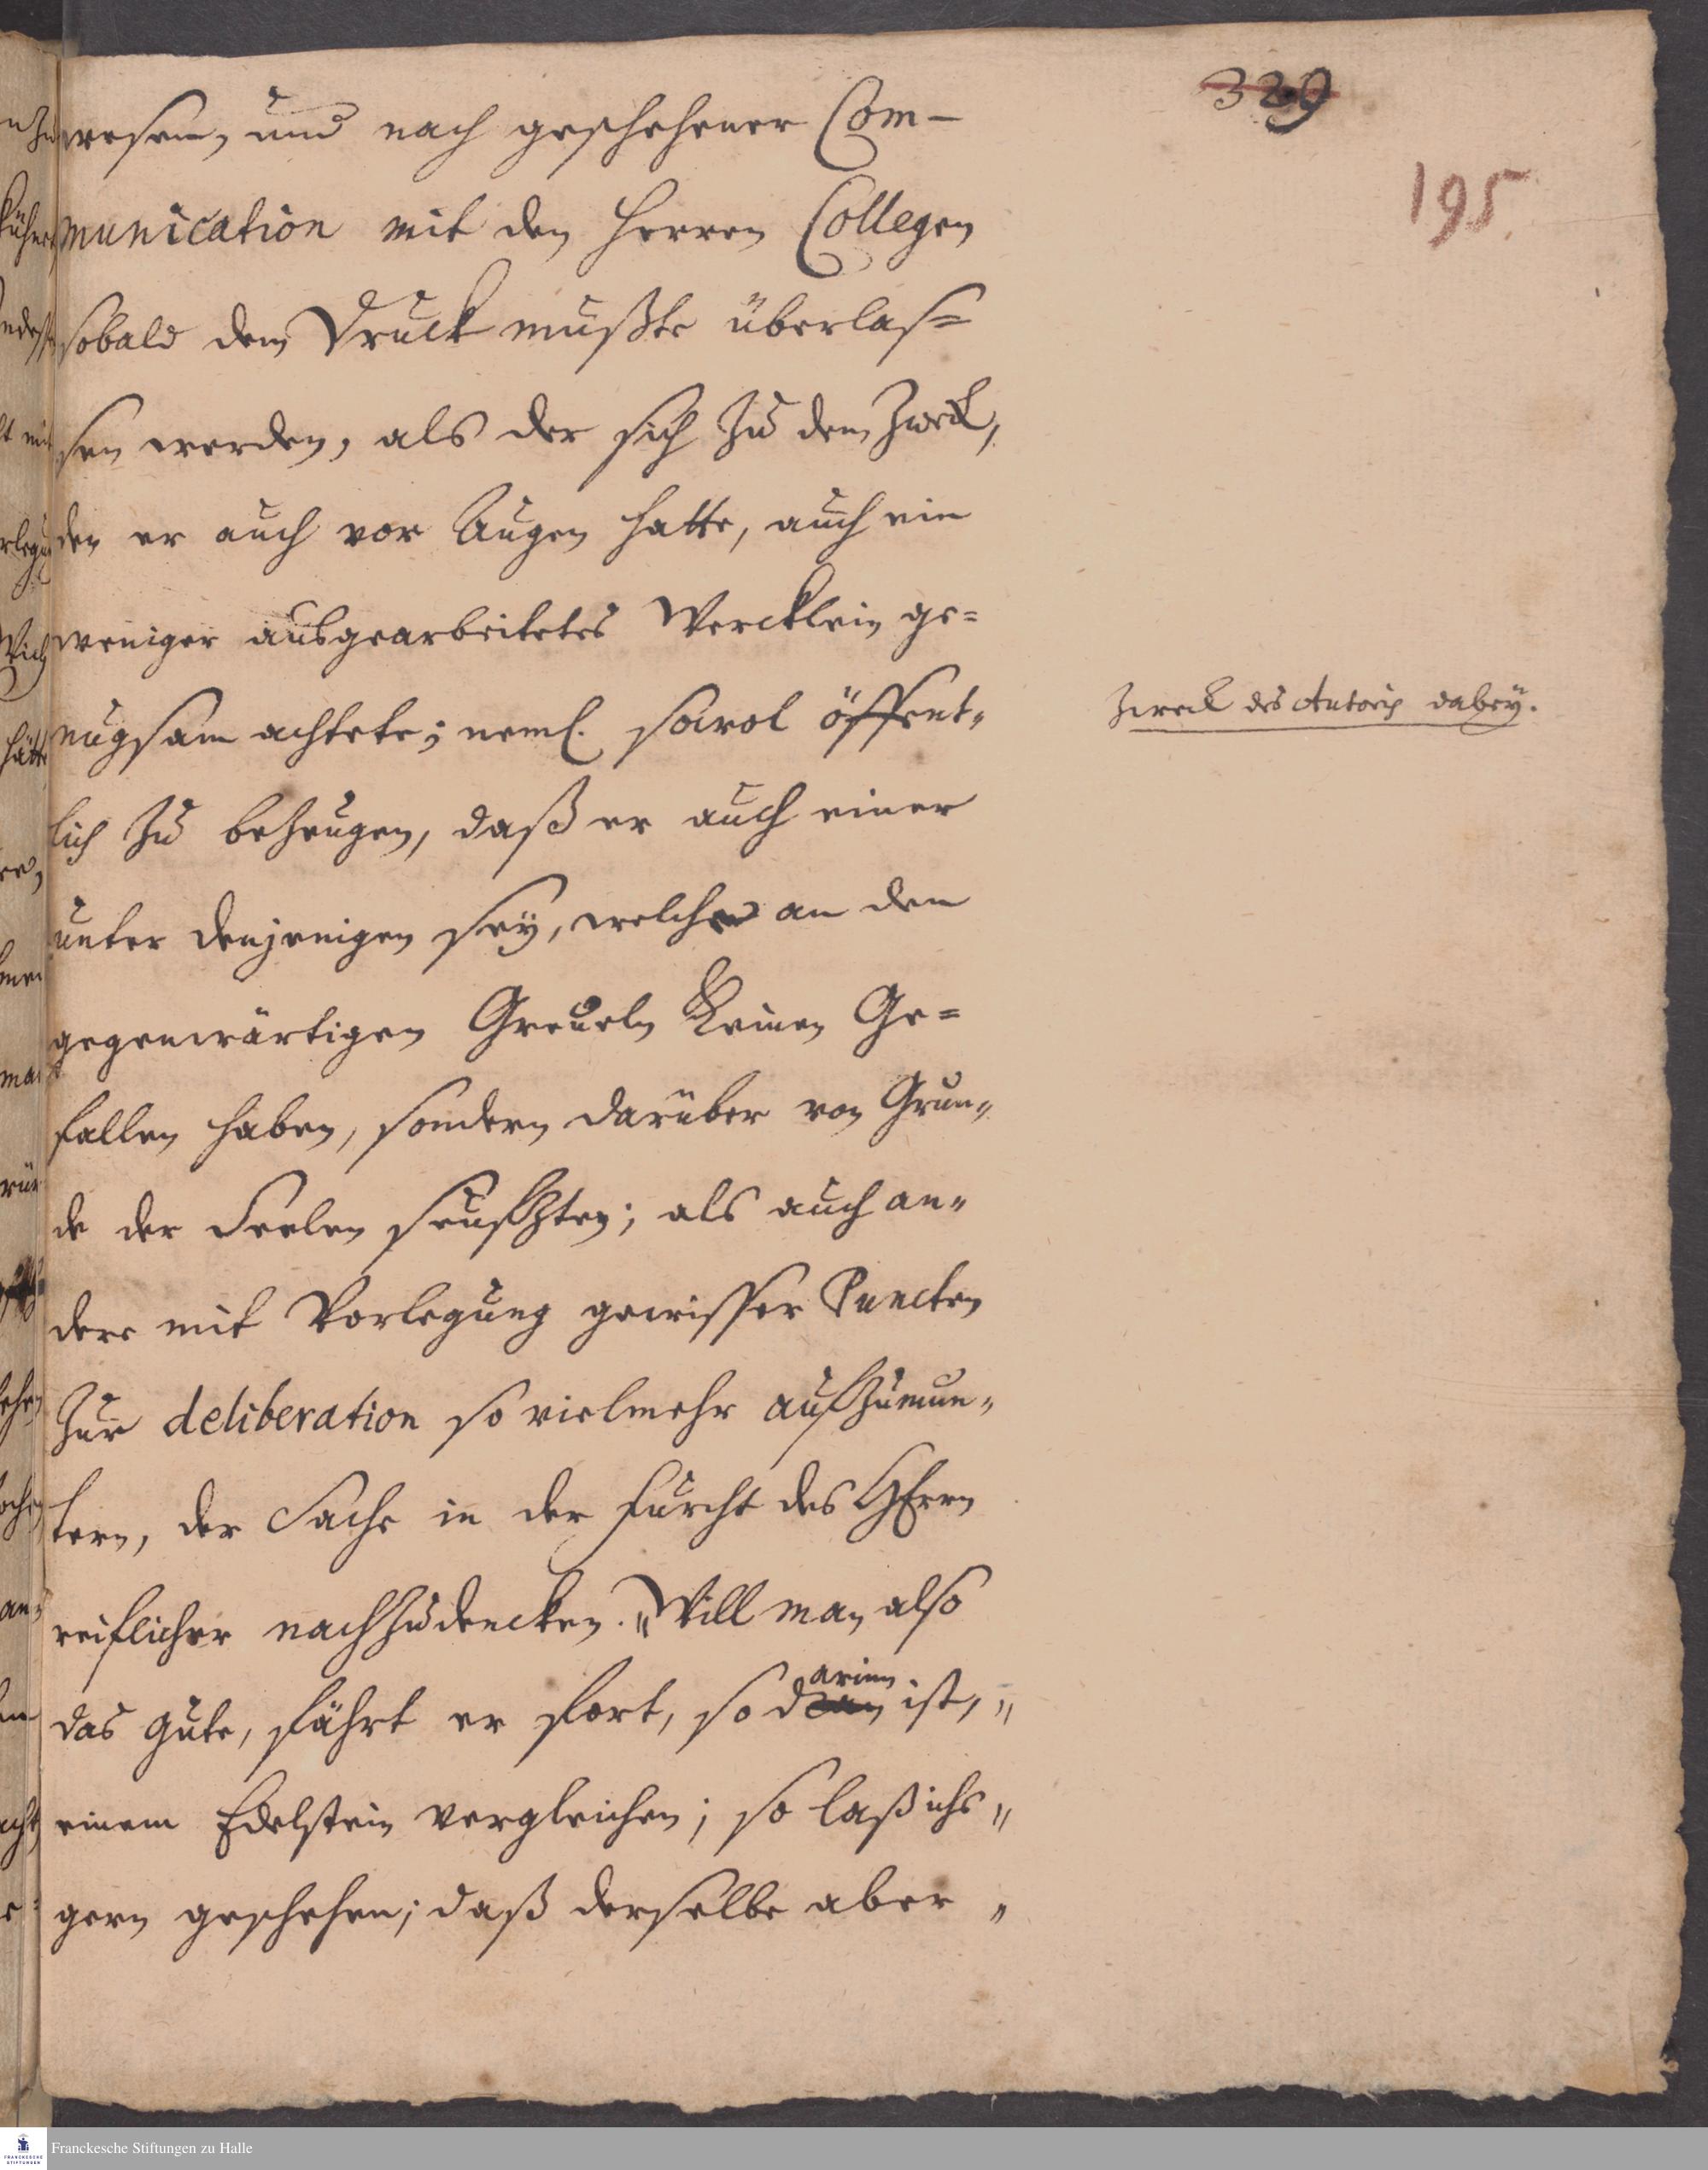 329
195.
wesen, und nach geschehener Com-
munication mit den Herren Collegen
sobald dem Druck mußte überlas=
sen werden, als der sich zu dem Zweck,
den er auch vor Augen hatte, auch ein
weniger ausgearbeitetes Wercklein ge=
nugsam achtete; neml. sowol öffent=
Zweck des Autoris dabey.
lich zu bezeugen, daß er auch einer
unter denjenigen sey, welche an dem
gegenwärtigen Greueln keinen Ge=
fallen haben, sondern darüber von Grun=
de der Seelen seufzten; als auch an=
dere mit Vorlegung gewisser Puncten
zur deliberation so vielmehr aufzumun=
tern, der Sache in der Furcht des HErrn
reiflicher nachzudencken. „Will man also
das Gute, fährt er fort, so darinn ist, „
einem Edelstein vergleichen; so laß ichs „
gern geschehen; daß derselbe aber „
Franckesche Stiftungen zu Halle